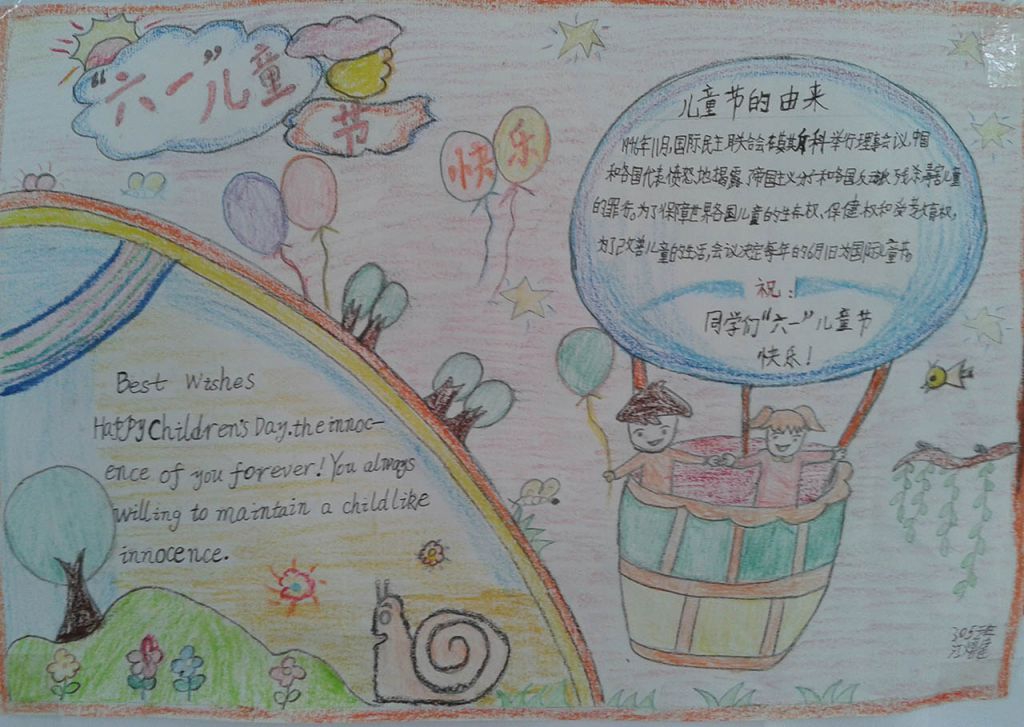 “六一”儿童
节
快乐
儿童节的由来
1949年11月,国际民主妇联合会在莫斯科举行理事会议,中国
和各国代表愤怒地揭露了帝国主义分子和各国反动派残杀毒害儿童
的罪行。为了保障世界各国儿童的生存权、保健权和受教育权,
为了改善儿童的生活,会议决定每年的6月1日为国际儿童节。
祝:
同学们“六一”儿童节
快乐!
Best Wishes
Happy Children's Day.the innoc-
ence of you forever! You always
willing to maintain a childlike
innocence.
305班